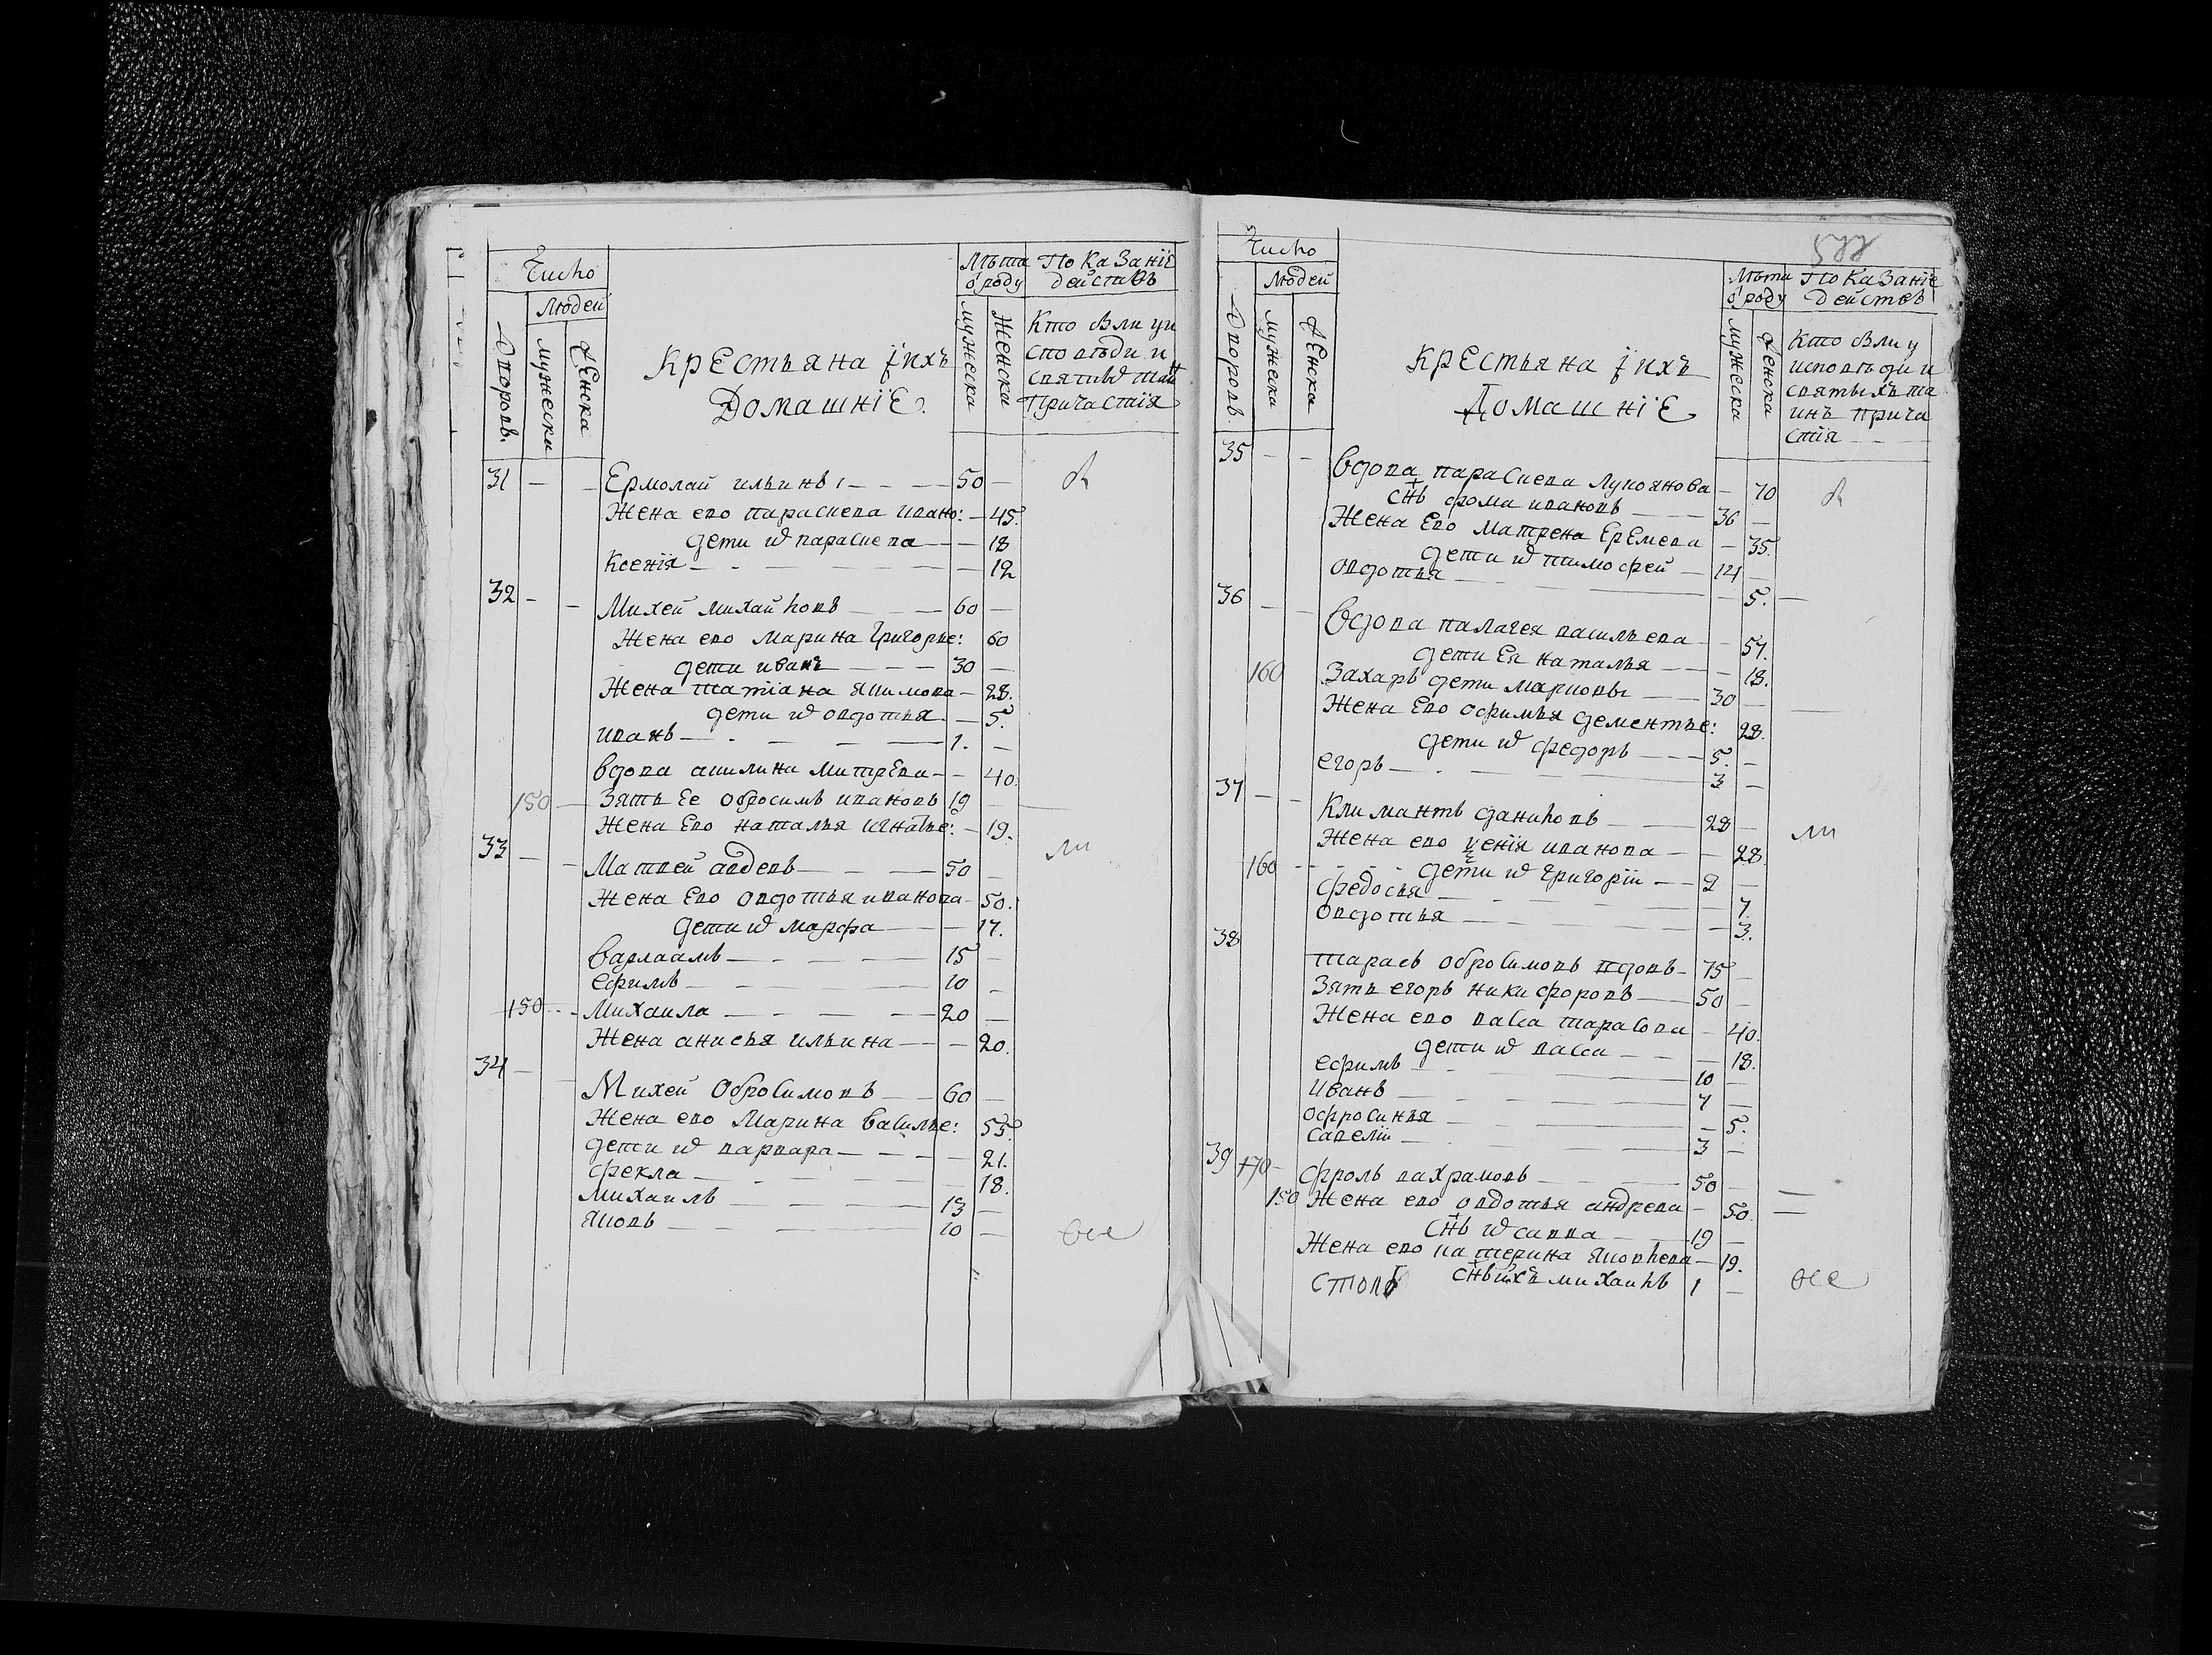 Число
Людей
Дворовъ.
мужеска
Женска
Крестьяна и ихъ
Домашніе.
Лѣта
ѿ роду
мужеска
Женска
Показаніе
действъ
Кто был у и
споведи и
святых таи
Причастия
31 — — Ермолай ильинъ — — — 50 —
Жена ево параскева ивано: — 45.
дети их параскева — — 18
Ксенія — — — — — 12
32 — — Михей михайловъ — — — 60 —
Жена ево Марина Григорье: 60
дети иванъ — — — 30 —
Жена татіана якимова — 28.
дети их овдотья — 5.
иванъ — — — — 1. —
вдова акилина митрева — — 40.
150 — Зять Ее обросимъ ивановъ 19 —
Жена Ево наталья игнатье: — 19.
33 — — Матвей авдевъ — — — 50 —
Жена Ево овдотья иванова — 50.
дети их марфа — — 17.
варлаамъ — — — — 15 —
ефимъ — — — — 10 —
150 — Михаила — — — — 20 —
Жена анисья ильина — — 20.
34 — — Михей Обросимовъ — — 60 —
Жена ево Марина василье: 55.
дети их варвара — — — 21.
фекла — — — — 18.
михаилъ — — — — 13 —
яковъ — — — — 10 —
все
577
Число
Людей
Дворовъ.
мужеска
Женска
Крестьяна и ихъ
Домашніе
Лѣта
ѿ роду
мужеска
Женска
Показаніе
действъ
Кто были у
исповѣди и
святыхъ та
инъ прича
стія — —
35 — — Вдова параскева Лукоянова — 70
снъ фома ивановъ — — 36 —
Жена Ево матрена Еремева — 35.
дети их тимофей — 14 —
овдотья — — — — 5.
36 — — Вдова палагея васильева — — 57.
дети Ея наталья — — 18.
160 Захаръ дети марковы — — 30 —
Жена Ево офимья дементье: 28.
дети их федоръ — — 5. —
егоръ — — — — 3 —
37 — — Климантъ даниловъ — — 28 —
Жена ево ксенія иванова — — 28.
160 — — дети их григорій — — 9 —
федосья — — — — 7.
овдотья — — — — 3.
38 тарасъ обросимовъ вдовъ — 75 —
Зять егоръ никифоровъ — 50 —
Жена ево васа тарасова — 40.
дети их васса — — — 18.
ефимъ — — — — 10 —
иванъ — — — — 7 —
офросинья — — — — 5.
савелій — — — — 3 —
39 170 — фролъ вахрамовъ — — 50 —
150 Жена ево овдотья андрева — 50.
снъ их савва — — 19 —
Жена ево катерина яковлева — 19.
снъ ихъ михаилъ 1 —
все